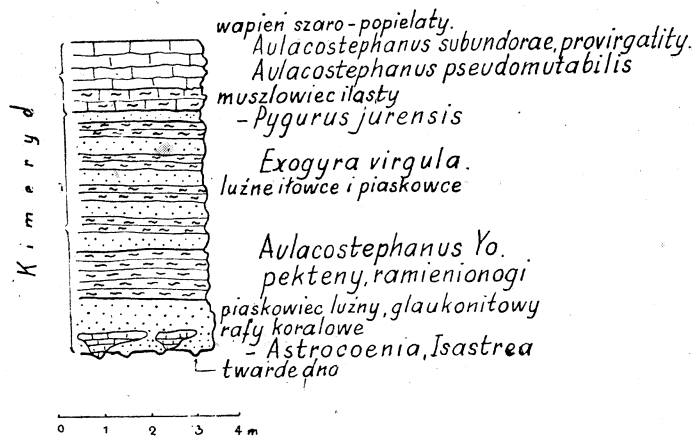 wapień szaro-popielaty.
Aulacostephanus subundorae, provirgality.
Aulacostephanus pseudomutabilis
muszlowiec ilasty
- Pygurus jurensis
Exogyra virgula.
luźne iłowce i piaskowce
Aulacostephanus Yo.
pekteny, ramienionogi
piaskowiec luźny, glaukonitowy
rafy koralowe
- Astrocoenia, Isastrea
twarde dno
Kimeryd
0 1 2 3 4 m